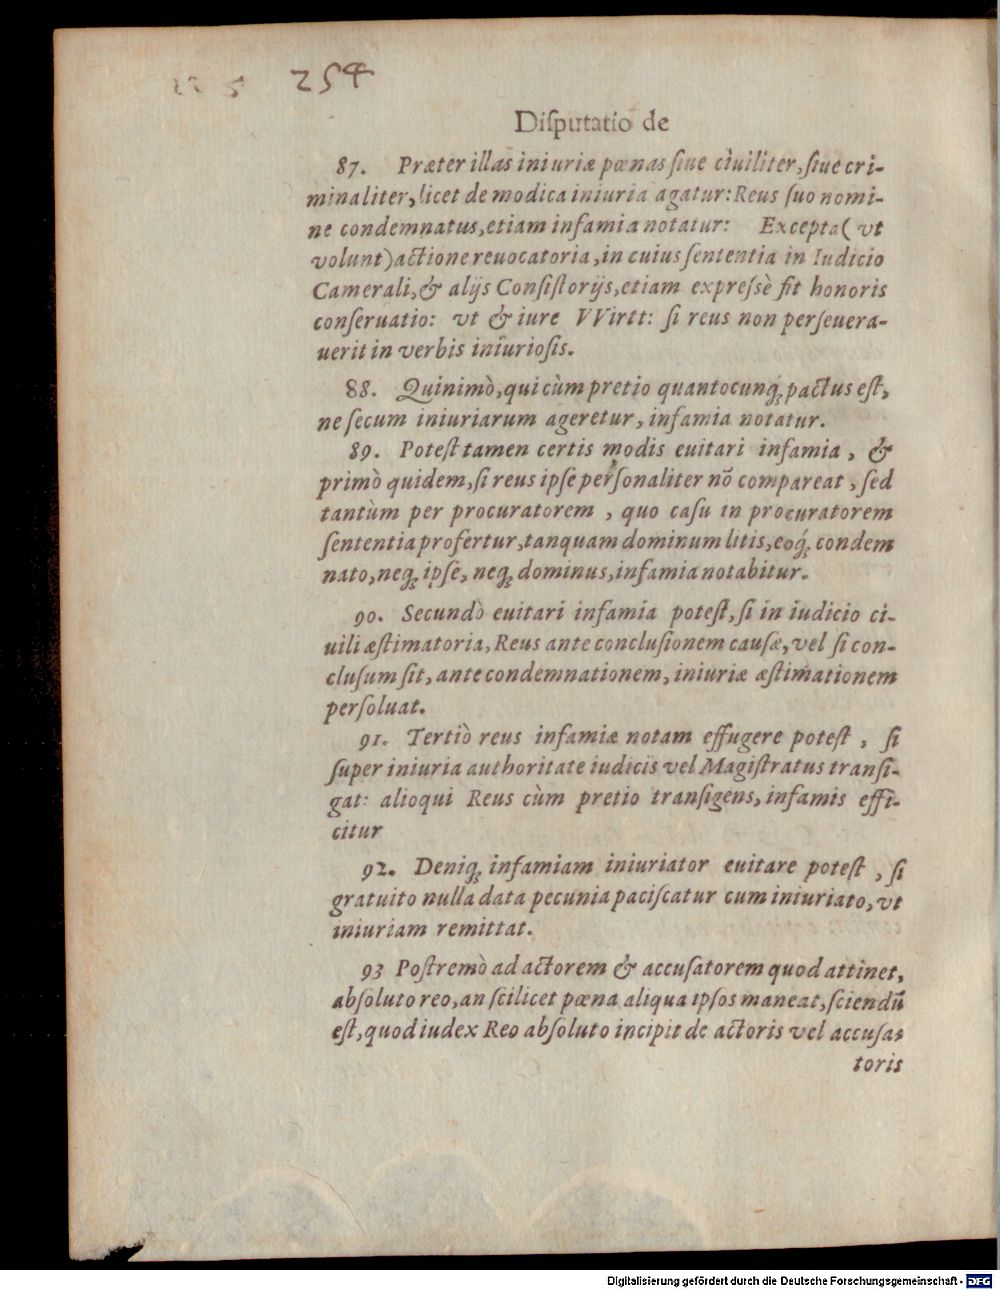 254
Diſputatio de
87. Præter illas iniuriæ pœnas ſiue ciuiliter, ſiue cri-
minaliter, licet de modica iniuria agatur: Reus ſuo nomi-
ne condemnatus, etiam infamia notatur: Excepta (vt
volunt) actione reuocatoria, in cuius ſententia in Iudicio
Camerali, & alijs Conſiſtorijs, etiam expreſsè fit honoris
conſeruatio: vt & iure VVirtt: ſi reus non perſeuera-
uerit in verbis iniurioſis.
88. Quinimò, qui cùm pretio quantocunq; pactus eſt,
ne ſecum iniuriarum ageretur, infamia notatur.
89. Poteſt tamen certis modis euitari infamia, &
primò quidem, ſi reus ipſe perſonaliter nō compareat, ſed
tantùm per procuratorem, quo caſu in procuratorem
ſententia profertur, tanquam dominum litis, eoq́; condem
nato, neq; ipſe, neq; dominus, infamia notabitur.
90. Secundò euitari infamia poteſt, ſi in iudicio ci-
uili æſtimatoria, Reus ante concluſionem cauſæ, vel ſi con-
cluſum ſit, ante condemnationem, iniuriæ æſtimationem
perſoluat.
91. Tertiò reus infamiæ notam effugere poteſt, ſi
ſuper iniuria authoritate iudicis vel Magiſtratus tranſi-
gat: alioqui Reus cùm pretio tranſigens, infamis effi-
citur
92. Deniq; infamiam iniuriator euitare poteſt, ſi
gratuito nulla data pecunia paciſcatur cum iniuriato, vt
iniuriam remittat.
93 Poſtremò ad actorem & accuſatorem quod attinet,
abſoluto reo, an ſcilicet pœna aliqua ipſos maneat, ſciendū
eſt, quod iudex Reo abſoluto incipit de actoris vel accuſa-
toris
Digitalisierung gefördert durch die Deutsche Forschungsgemeinschaft - DFG